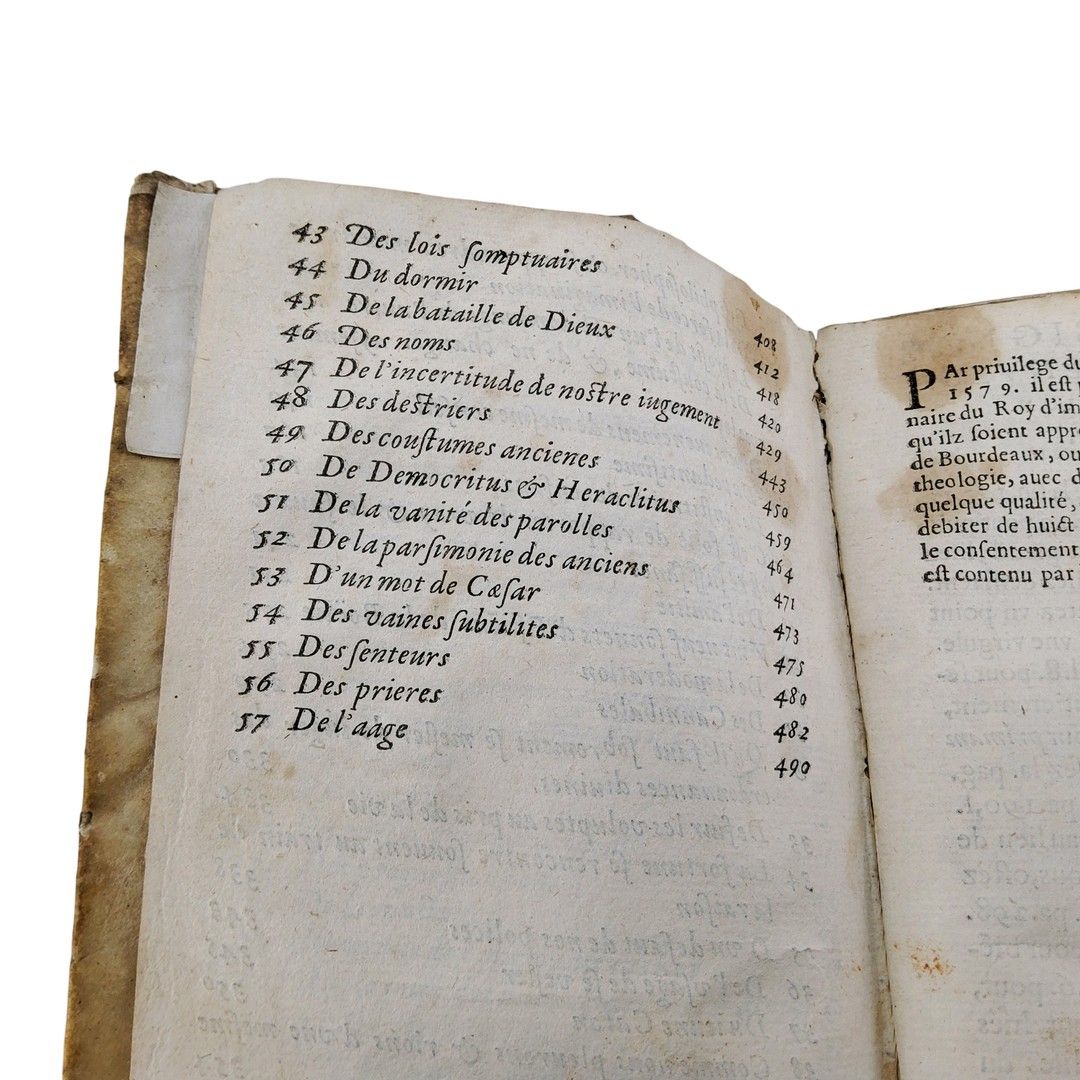 43 Des lois ſomptuaires 408
44 Du dormir 412
45 De la bataille de Dieux 418
46 Des noms 420
47 De l'incertitude de noſtre iugement 429
48 Des deſtriers 443
49 Des couſtumes ancienes 450
50 De Democritus & Heraclitus 459
51 De la vanité des parolles 464
52 De la parſimonie des anciens 471
53 D'un mot de Cæſar 473
54 Des vaines ſubtilites 475
55 Des ſenteurs 480
56 Des prieres 482
57 De l'aage 490
PAr priuilege du
1579. il eſt
naire du Roy d'im
qu'ilz ſoient appr
de Bourdeaux, ou
theologie, auec d
quelque qualité,
debiter de huict
le conſentement
eſt contenu par